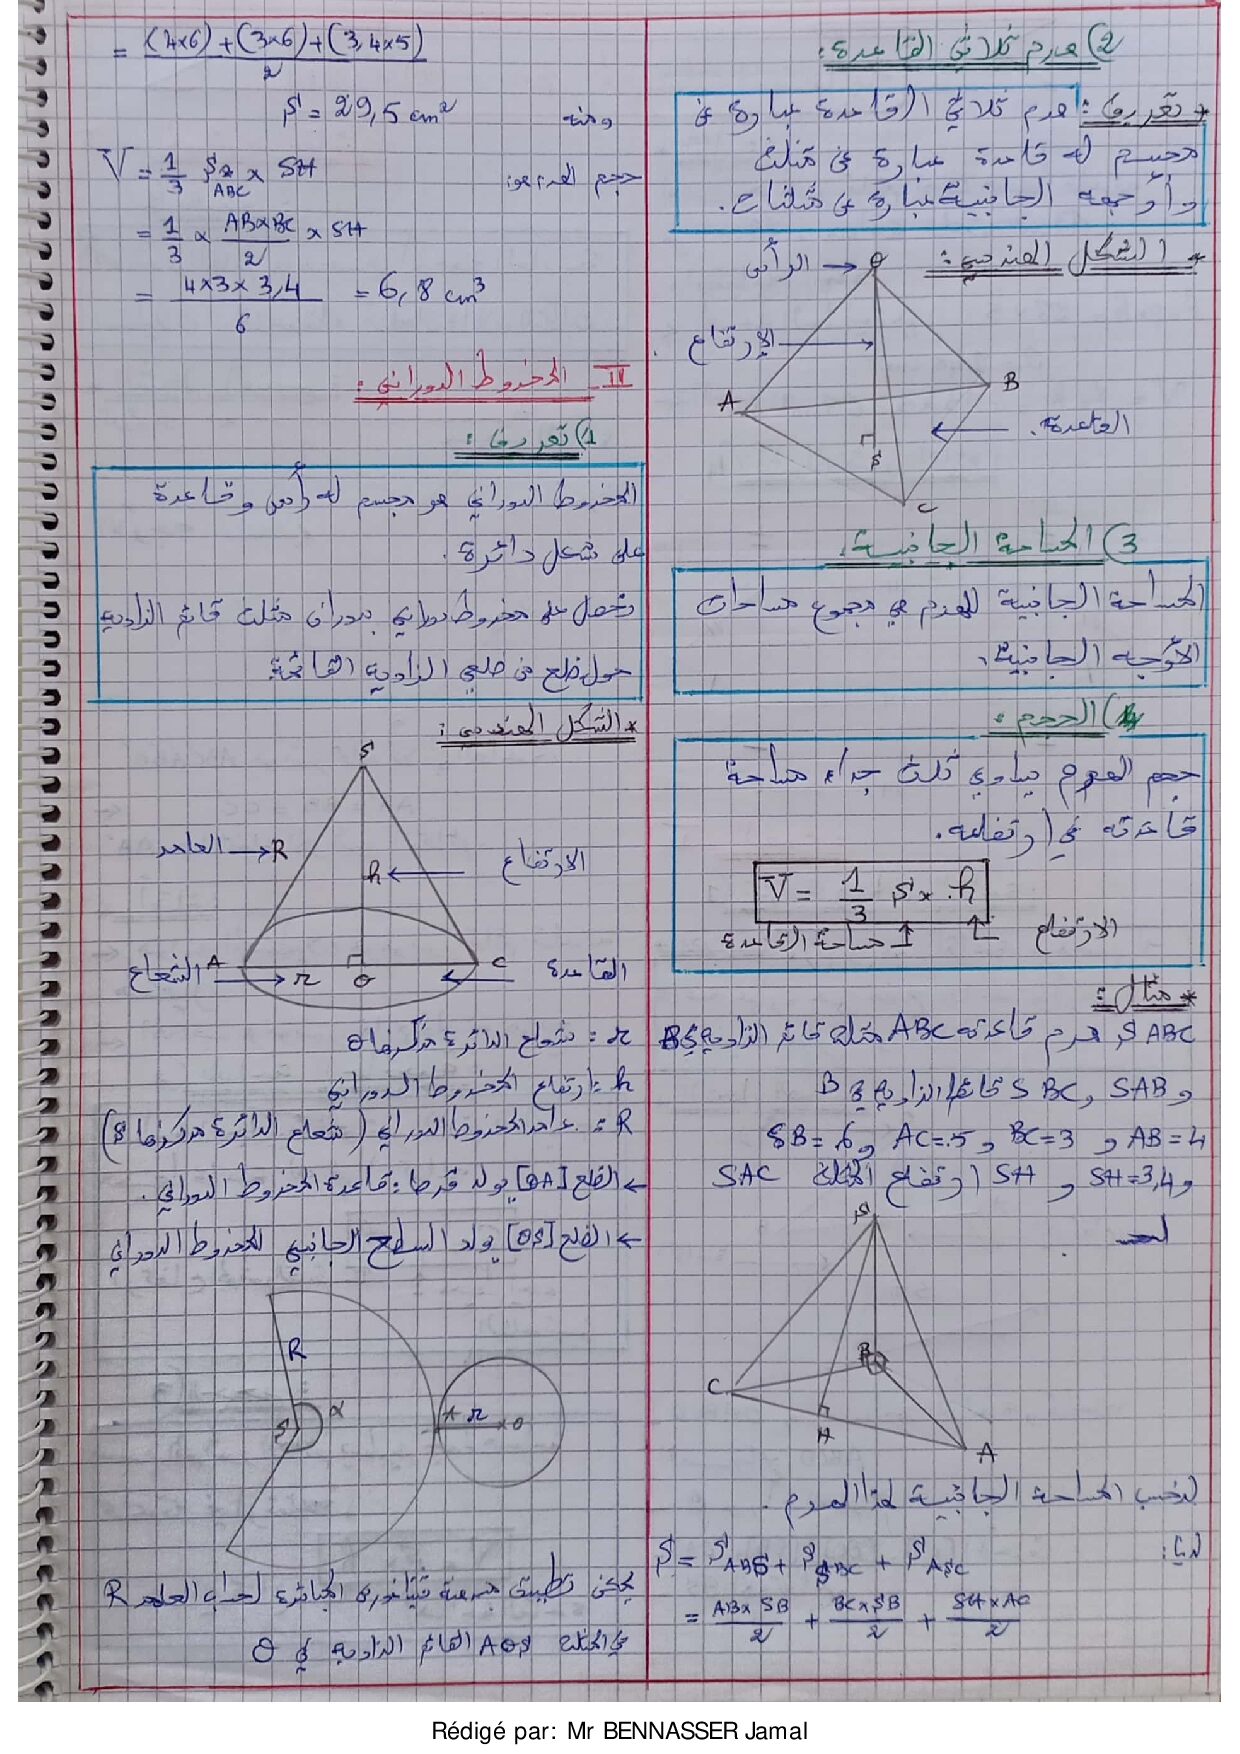 2) هرم ثلاثي القاعدة:
* تعريف: هرم ثلاثي القاعدة عبارة عن
مجسم له قاعدة عبارة عن مثلث
وأوجهه الجانبية عبارة عن مثلثات.
* الشكل الهندسي:
الرأس
الإرتفاع
A
B
القاعدة.
S
C
3) المساحة الجانبية.
المساحة الجانبية للهرم هي مجموع مساحات
الأوجه الجانبية.
4) الحجم:
حجم الهرم يساوي ثلث جداء مساحة
قاعدته في ارتفاعه.
V = 1/3 S × h
مساحة القاعدة
الارتفاع
* مثال:
SABC هرم قاعدته ABC مثلث قائم الزاوية في B
و SAB و SBC قائما الزاوية في B
AB = 4 و BC = 3 و AC = 5 و SB = 6
و SH = 3,4 و SH ارتفاع المثلث SAC
S
B
C
H
A
لنحسب المساحة الجانبية لهذا الهرم.
لدينا:
S = S ABS + S SBC + S ASC
= AB × SB / 2 + BC × SB / 2 + SH × AC / 2
= (4×6) + (3×6) + (3,4×5) / 2
ومنه S = 29,5 cm²
حجم الهرم هو: V = 1/3 S ABC × SH
= 1/3 × AB×BC / 2 × SH
= 4×3×3,4 / 6 = 6,8 cm³
IV - المخروط الدوراني:
1) تعريف:
المخروط الدوراني هو مجسم له رأس وقاعدة
على شكل دائرة.
نحصل على مخروط دوراني بدوران مثلث قائم الزاوية
حول ضلع من ضلعي الزاوية القائمة.
* الشكل الهندسي:
S
العامد
R
h
الارتفاع
الشعاع
A
r
O
C
القاعدة
r : شعاع الدائرة مركزها O
h : ارتفاع المخروط الدوراني
R : عامد المخروط الدوراني (شعاع الدائرة مركزها S)
← الضلع [OA] يولد قرصا: قاعدة المخروط الدوراني.
← الضلع [OS] يولد السطح الجانبي للمخروط الدوراني
R
S
α
A
r
O
يمكن تطبيق مبرهنة فيتاغورس المباشرة لحساب العامد R
في المثلث AOS القائم الزاوية في O
Rédigé par: Mr BENNASSER Jamal